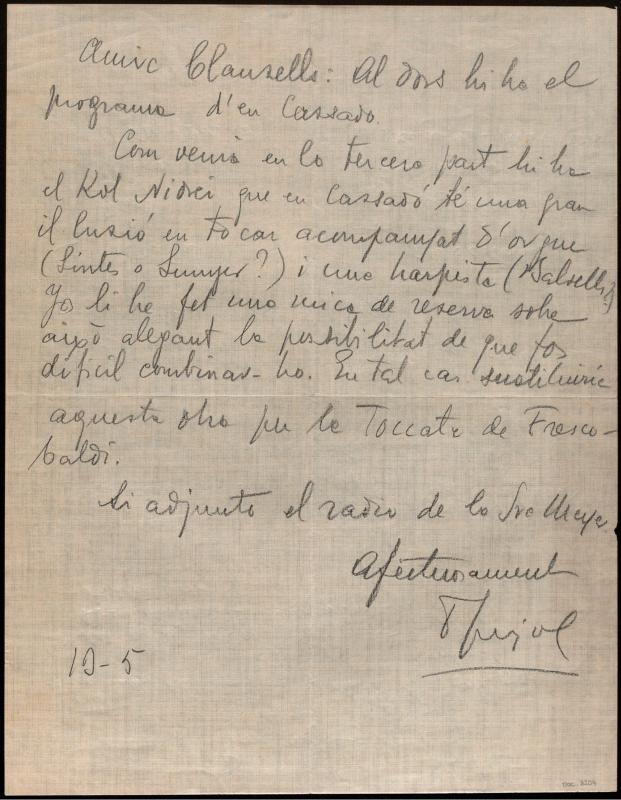 Amic Clausells: Al dors hi ha el
programa d'en Cassadó.
Com veurà en la tercera part hi ha
el Kol Nidrei que en Cassadó té una gran
il lusió en tocar acompanyat d'orgue
(Sintes o Sunyer?) i una harpista (Balsells?)
Jo li he fet una mica de reserva sobre
això alegant la possibilitat de que fos
difícil combinar-ho. En tal cas sustituirie
aquesta obra per la Toccata de Fresco-
baldi.
Li adjunto el radio de la Sra Meyer.
Afectuosament
Pujol
19-5
Doc. 3204